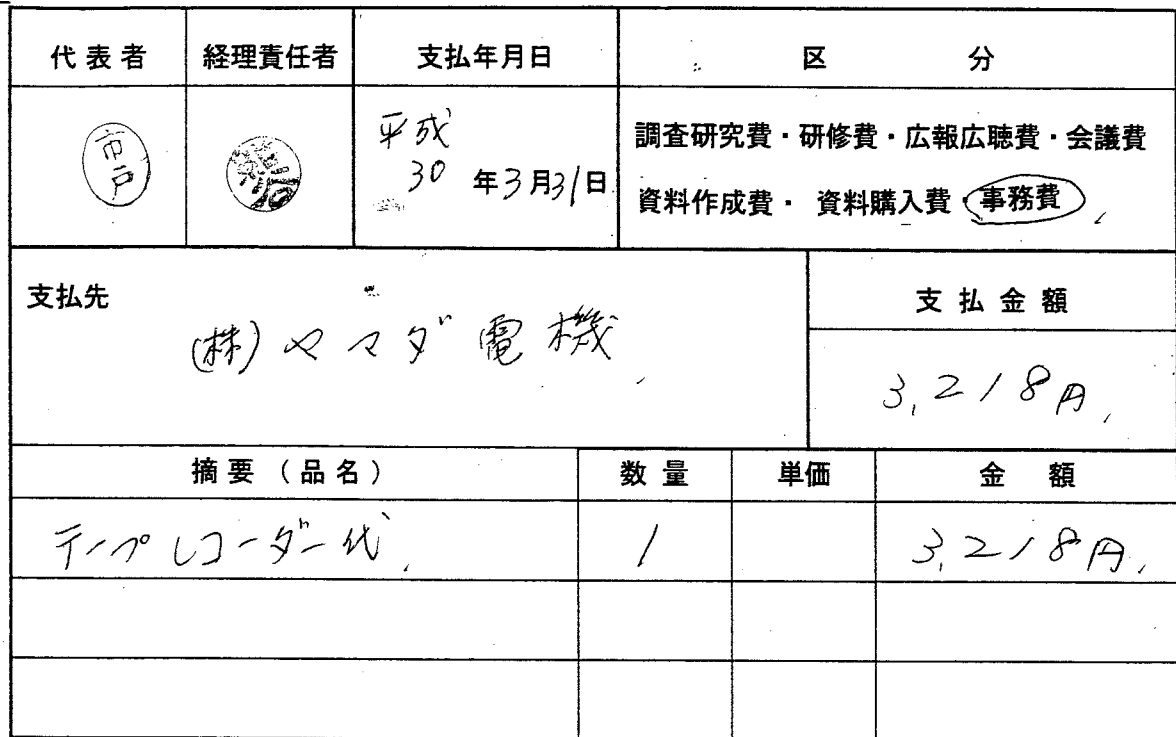 代表者 経理責任者 支払年月日 区分
市戸
平成
30年3月31日
調査研究費・研修費・広報広聴費・会議費
資料作成費・資料購入費・事務費
支払先
(株)ヤマダ電機
支払金額
3,218円
摘要(品名) 数量 単価 金額
テープレコーダー代 1 3,218円